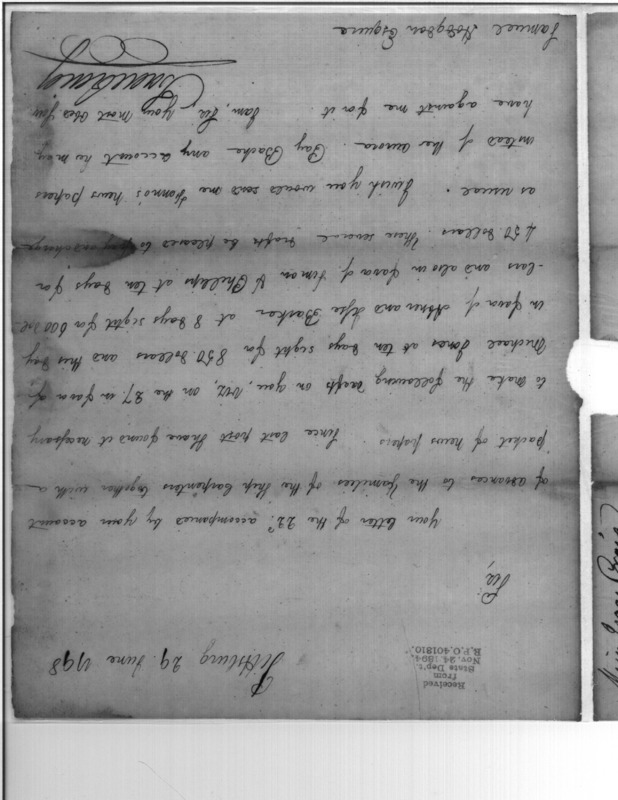 Received
from
State Dep't.
Nov. 24. 1894.
R.P.O. 401810.
Pittsburg 29. June 1798
Sir,
Your letter of the 22d. accompanied by your account
of advances to the families of the Ship Carpenters together with a
packet of news papers. Since last post I have found it necessary
to make the following drafts on you, viz, on the 27. in favor of
Michael Jones at ten days sight for 850. dollars and this day
in favor of Abner and Jesse Barker at 8 days sight for 600 dol-
-lars and also in favor of Simon & Phillips at ten days for
450 dollars. These several drafts be pleased to pay and charge
as usual. I wish you would send me Fenno's news papers
instead of the aurora. Pay Bache any account he may
have against me for it. I am, Sir, Your most obed
Samuel Hodgdon Esquire